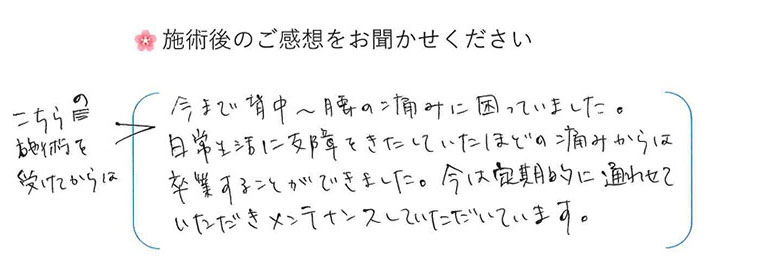 🌸 施術後のご感想をお聞かせください
こちらの
施術を
受けてからは
今まで背中〜腰の痛みに困っていました。
日常生活に支障をきたしていたほどの痛みからは
卒業することができました。今は定期的に通わせて
いただきメンテナンスしていただいています。